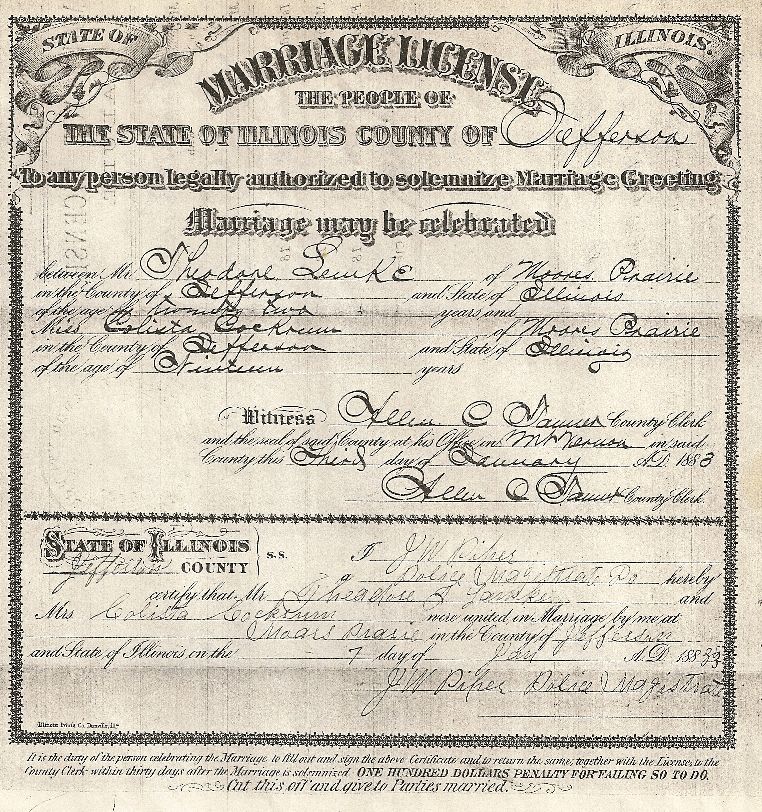 STATE OF ILLINOIS.
MARRIAGE LICENSE
THE PEOPLE OF
THE STATE OF ILLINOIS COUNTY OF Jefferson
To any person legally authorized to solemnize Marriage Greeting
Marriage may be celebrated
between Mr. Theodore Lemke of Moores Prairie
in the County of Jefferson and State of Illinois
of the age of twenty two years and
Miss Colista Cockrum of Moores Prairie
in the County of Jefferson and State of Illinois
of the age of Nineteen years
Witness Allen C Tanner County Clerk
and the seal of said County at his Office in Mt Vernon in said
County this Third day of January A.D. 1883
Allen C Tanner County Clerk
STATE OF ILLINOIS
Jefferson COUNTY S.S. I J W Piper
a Police Magistrate Do hereby
certify that Mr. Theadore and
Mrs Colista Cockrum were united in Marriage by me at
Moars Prairie in the County of Jefferson
and State of Illinois on the 7 day of Jan A.D. 1883
J W Piper Police Magistrate
Illinois Print'g Co. Danville, Ill.
It is the duty of the person celebrating the Marriage to fill out and sign the above Certificate and to return the same, together with the License, to the
County Clerk within thirty days after the Marriage is solemnized. ONE HUNDRED DOLLARS PENALTY FOR FAILING SO TO DO.
Cut this off and give to Parties married.